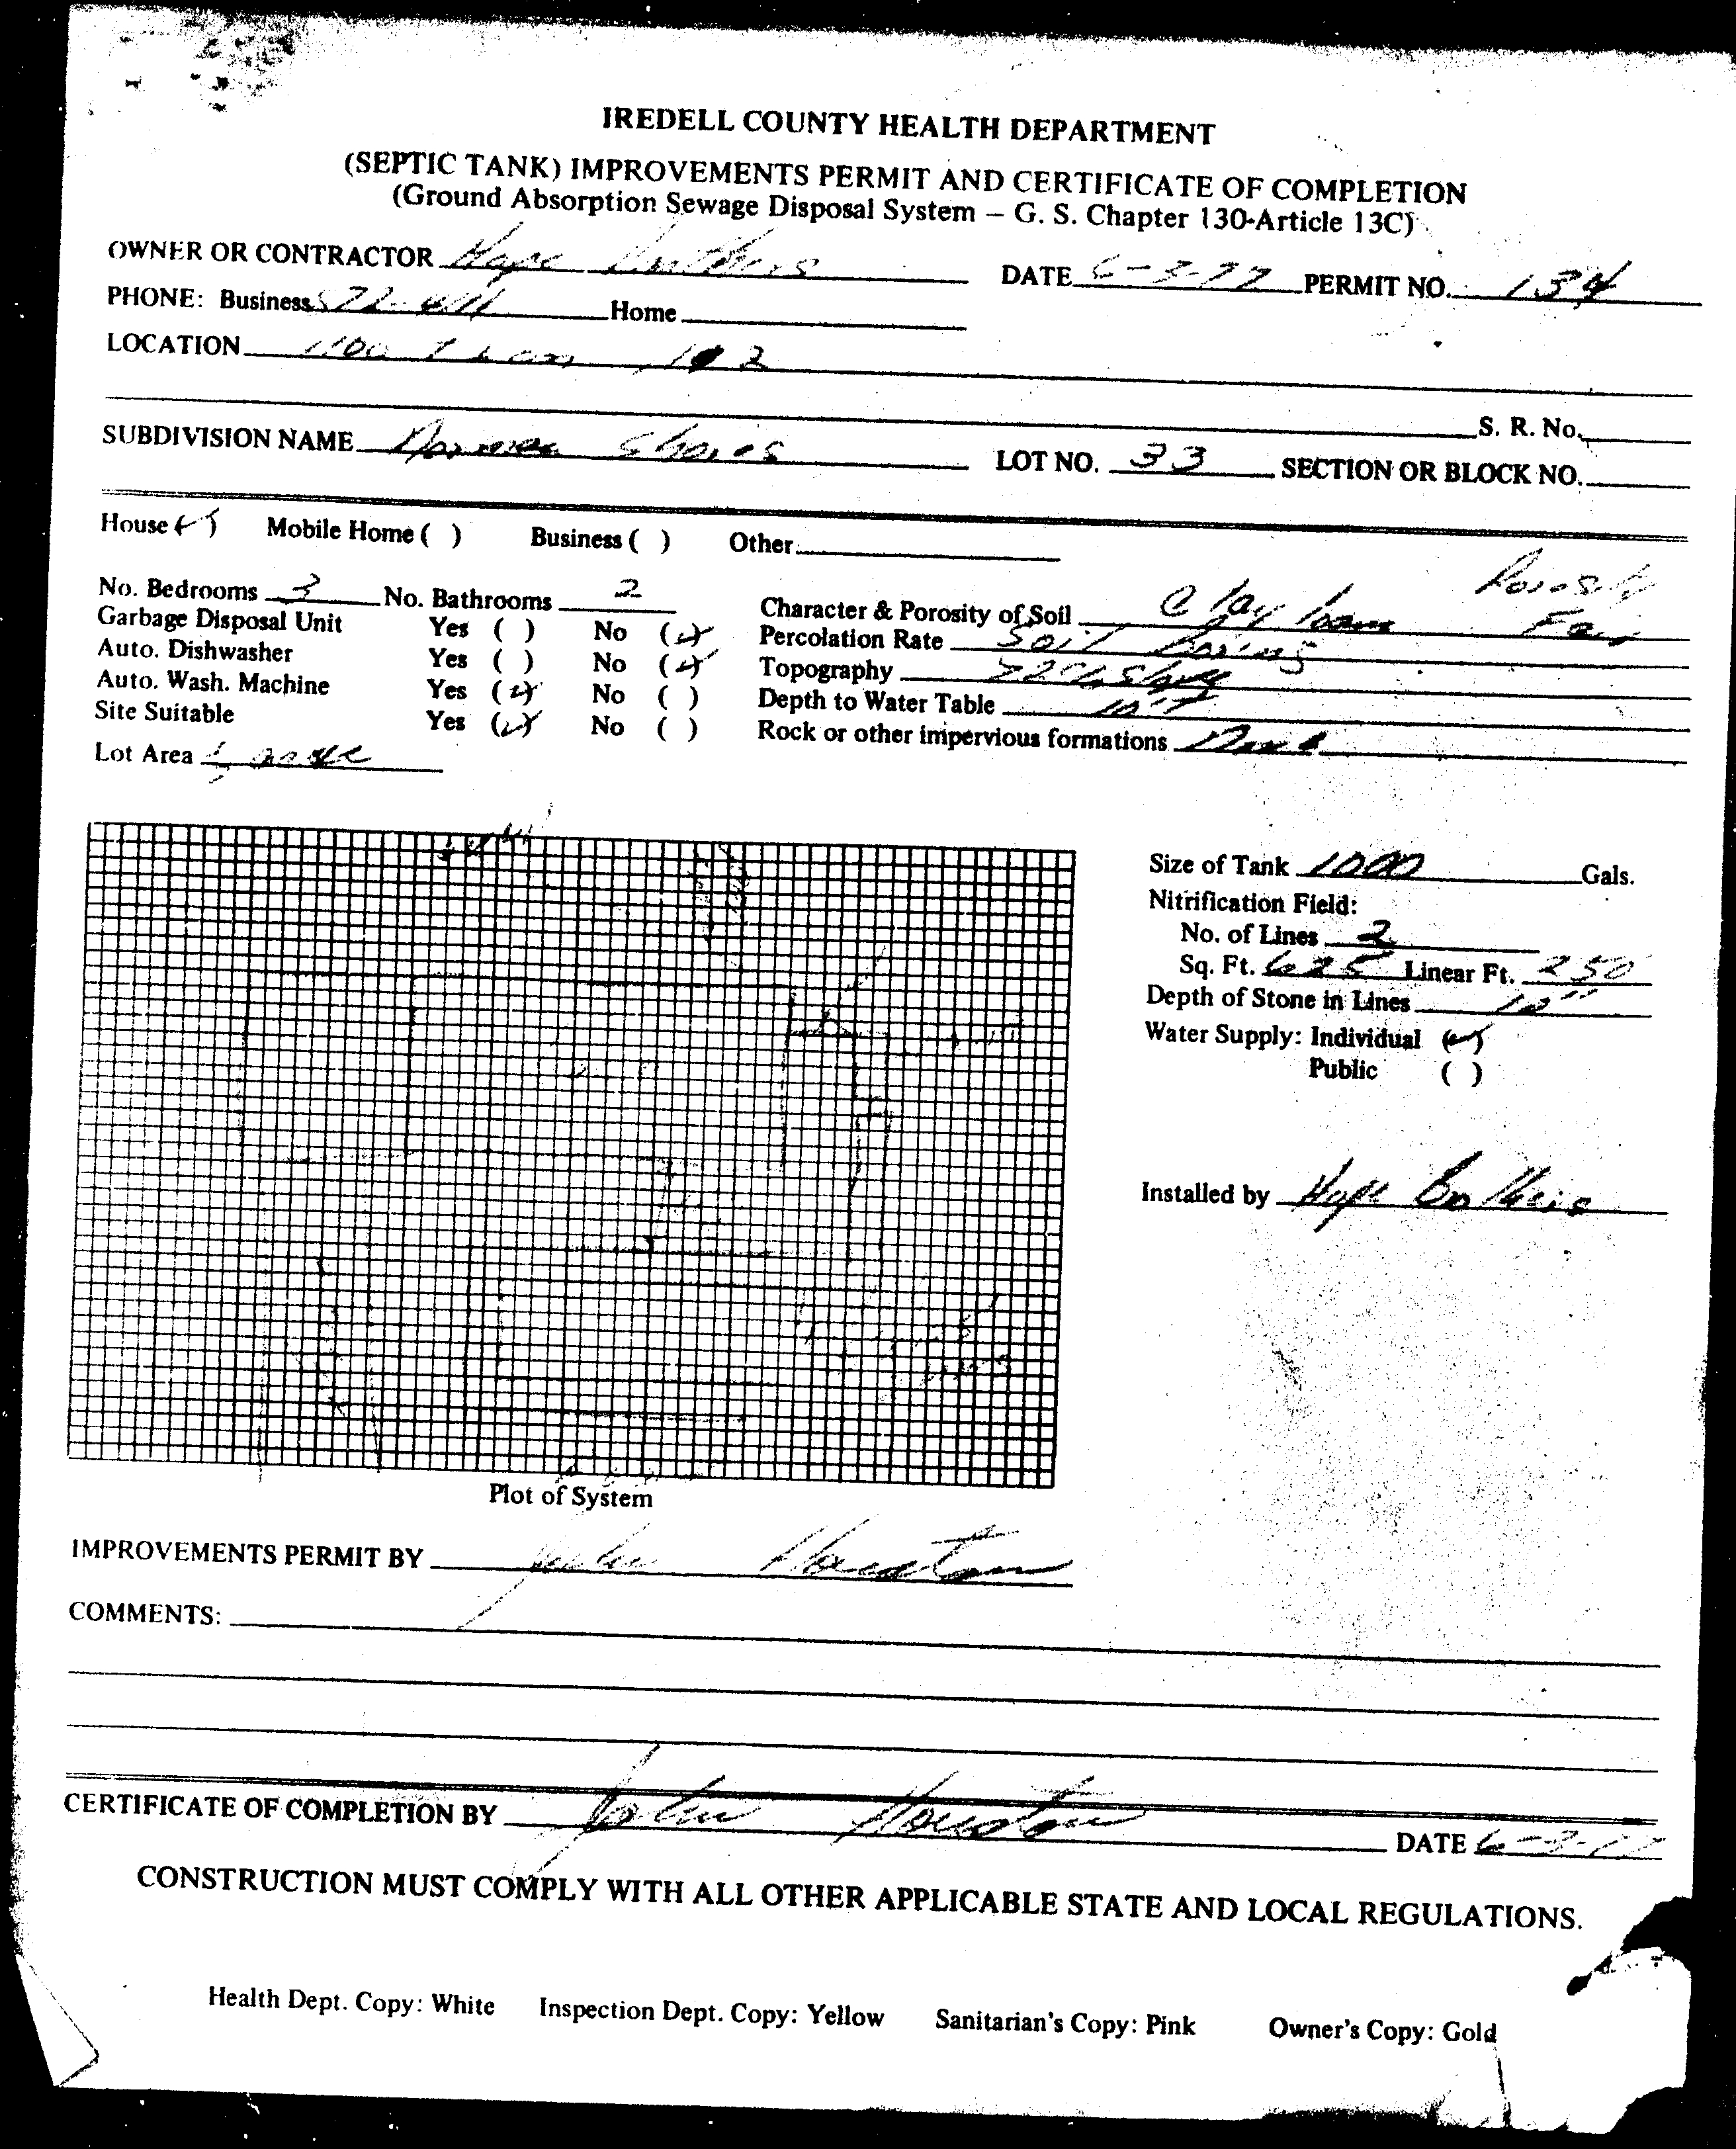 IREDELL COUNTY HEALTH DEPARTMENT
(SEPTIC TANK) IMPROVEMENTS PERMIT AND CERTIFICATE OF COMPLETION
(Ground Absorption Sewage Disposal System – G. S. Chapter 130-Article 13C)
OWNER OR CONTRACTOR DATE 6-3-77 PERMIT NO. 134
PHONE: Business Home
LOCATION
S. R. No.
SUBDIVISION NAME Shores LOT NO. 33 SECTION OR BLOCK NO.
House (✓) Mobile Home ( ) Business ( ) Other
No. Bedrooms 3 No. Bathrooms 2 Character & Porosity of Soil Clay loam Porosity Fair
Garbage Disposal Unit Yes ( ) No (✓) Percolation Rate Soil Boring
Auto. Dishwasher Yes ( ) No (✓) Topography Slope
Auto. Wash. Machine Yes (✓) No ( ) Depth to Water Table
Site Suitable Yes (✓) No ( ) Rock or other impervious formations None
Lot Area
Size of Tank 1000 Gals.
Nitrification Field:
No. of Lines 2
Sq. Ft. 625 Linear Ft. 250
Depth of Stone in Lines 10"
Water Supply: Individual (✓)
Public ( )
Installed by Brothers
Plot of System
IMPROVEMENTS PERMIT BY John Houston
COMMENTS:
CERTIFICATE OF COMPLETION BY John Houston DATE
CONSTRUCTION MUST COMPLY WITH ALL OTHER APPLICABLE STATE AND LOCAL REGULATIONS.
Health Dept. Copy: White Inspection Dept. Copy: Yellow Sanitarian's Copy: Pink Owner's Copy: Gold